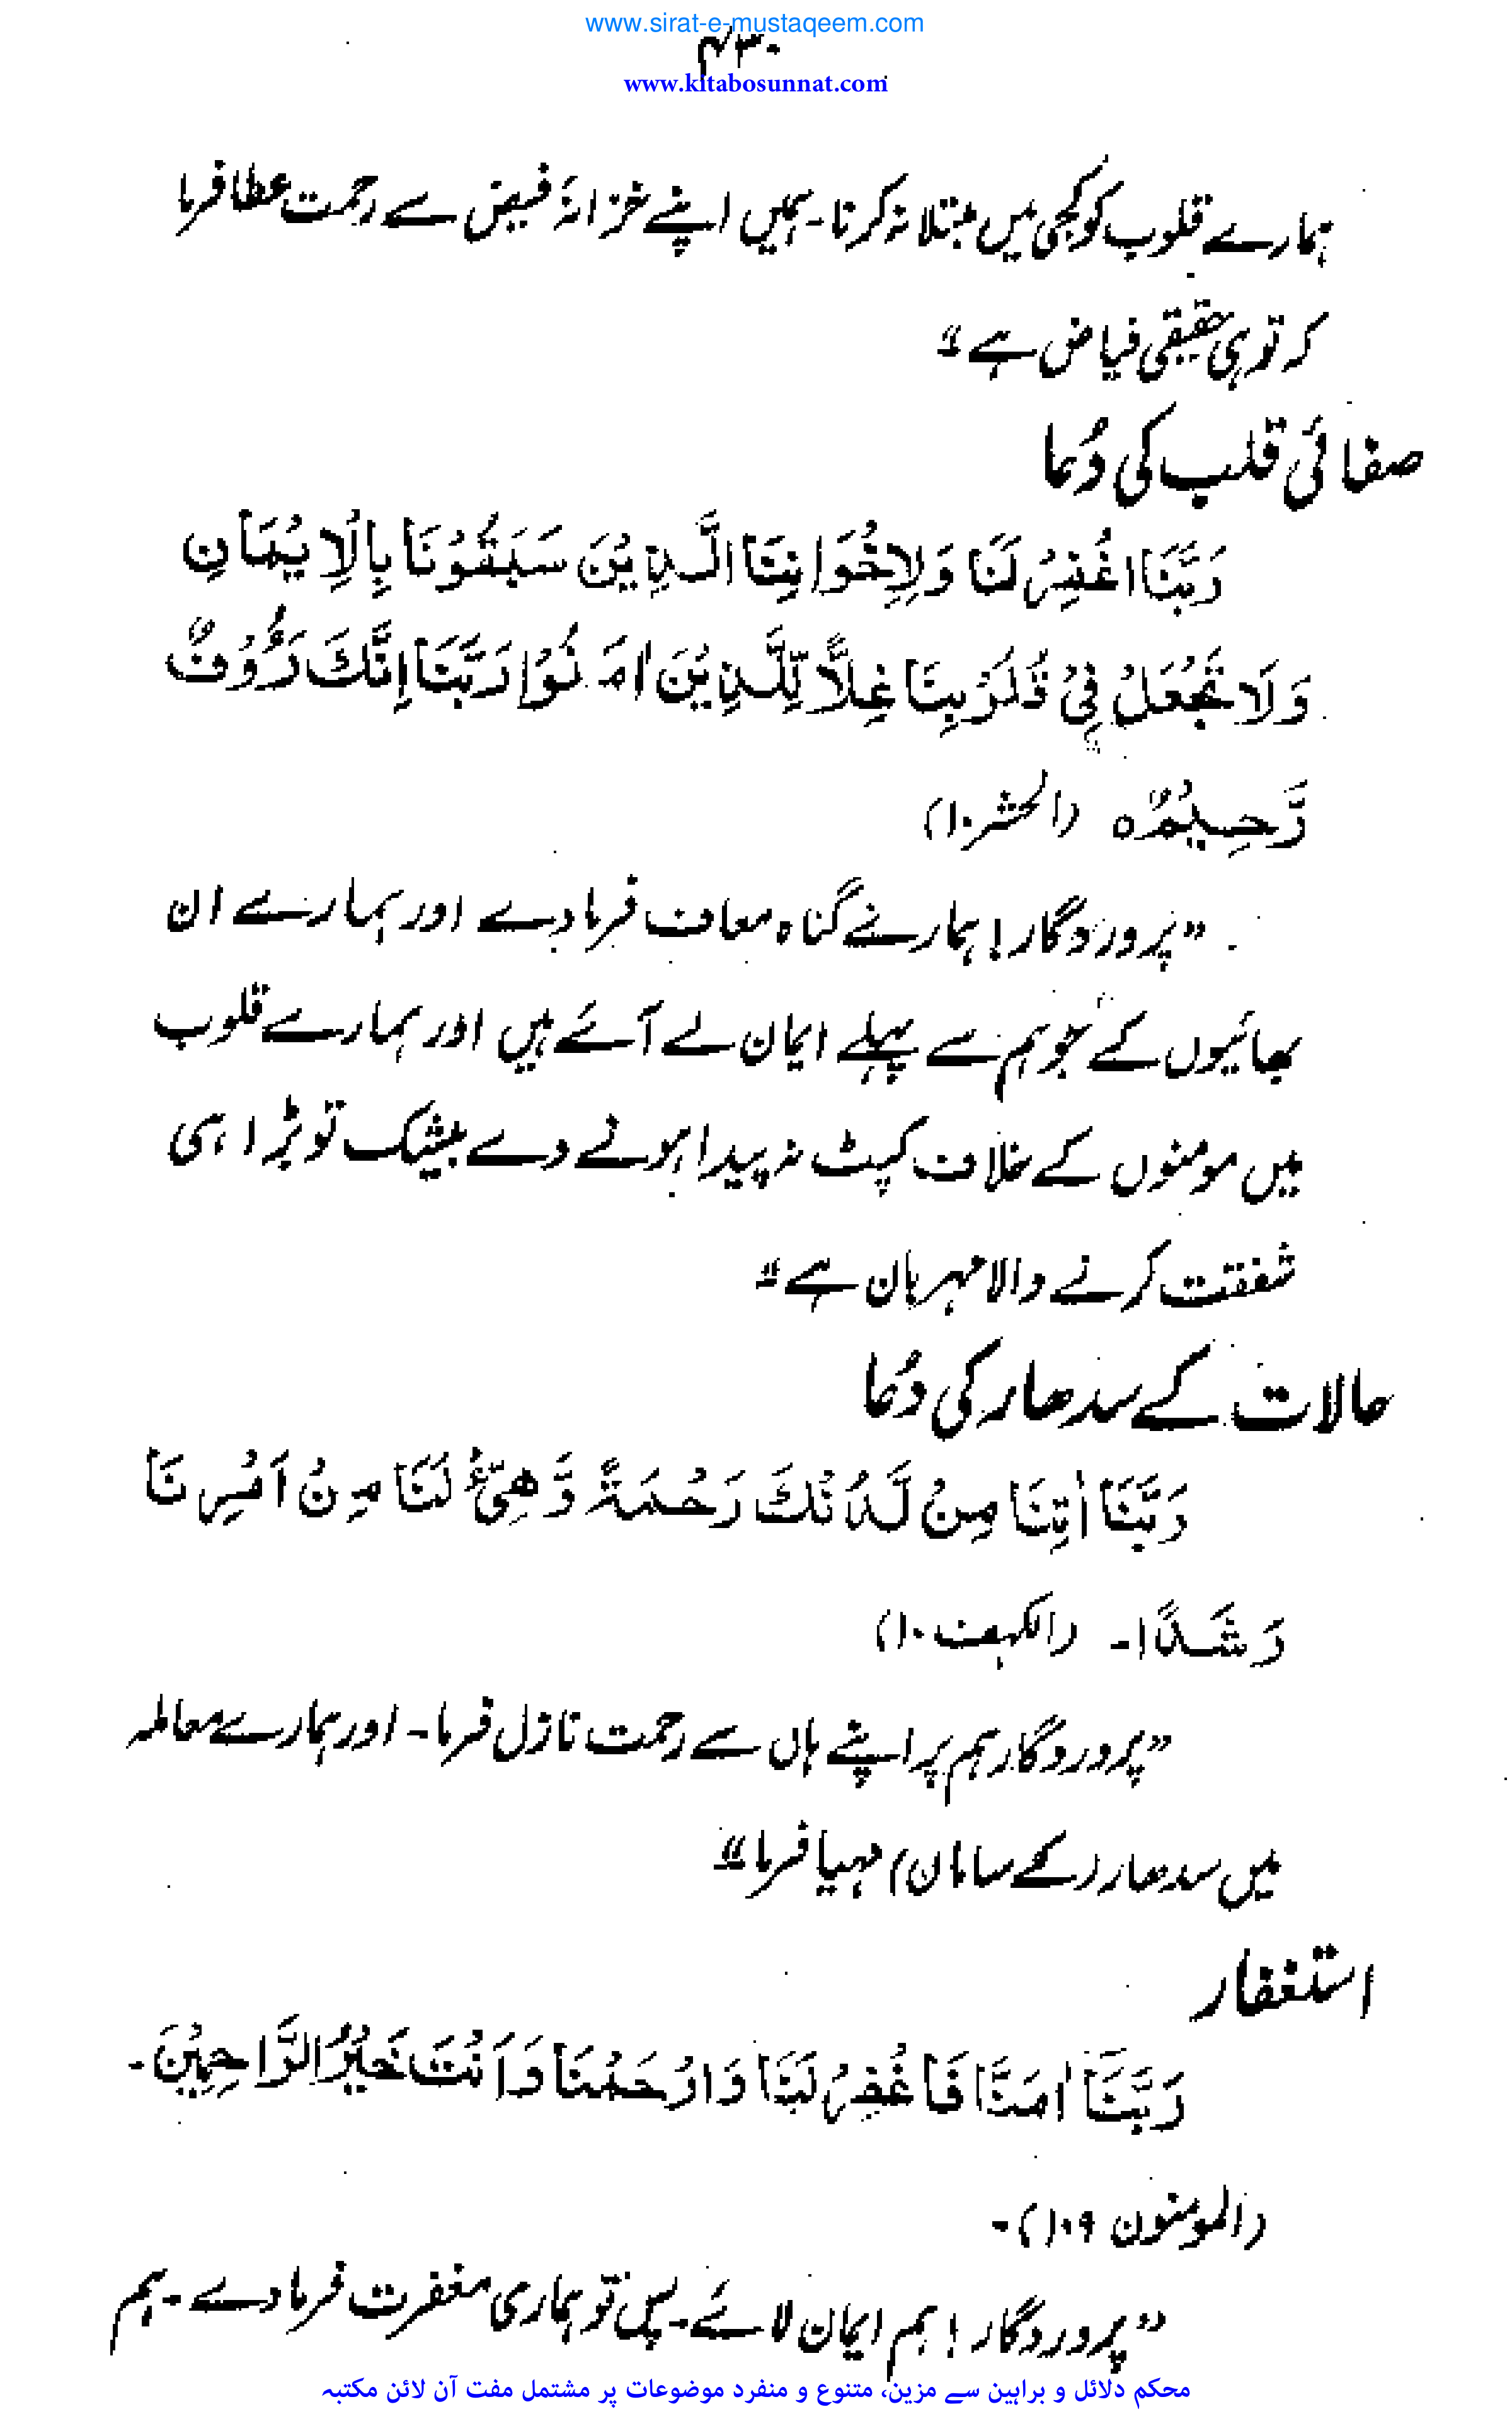 www.sirat-e-mustaqeem.com
۴۳۰
www.kitabosunnat.com
ہمارے قلوب کو کجی میں مبتلا نہ کرنا۔ ہمیں اپنے خزانۂ فیض سے رحمت عطا فرما
کہ تو ہی حقیقی فیاض ہے"
صفائی قلب کی دُعا
رَبَّنَا اغْفِرْ لَنَا وَلِاِخْوَانِنَا الَّذِيْنَ سَبَقُوْنَا بِالْاِيْمَانِ
وَلَا تَجْعَلْ فِيْ قُلُوْبِنَا غِلًّا لِّلَّذِيْنَ اٰمَنُوْا رَبَّنَا اِنَّكَ رَءُوْفٌ
رَّحِيْمٌ ه (الحشر ۱۰)
"پروردگار! ہمارے گناہ معاف فرما دے اور ہمارے ان
بھائیوں کے جو ہم سے پہلے ایمان لے آئے ہیں اور ہمارے قلوب
میں مومنوں کے خلاف کپٹ نہ پیدا ہونے دے بیشک تو بڑا ہی
شفقت کرنے والا مہربان ہے"
حالات کے سدھار کی دُعا
رَبَّنَا اٰتِنَا مِنْ لَّدُنْكَ رَحْمَةً وَّهَيِّئْ لَنَا مِنْ اَمْرِنَا
رَشَدًا۔ (الکہف ۱۰)
"پروردگار ہم پر اپنے ہاں سے رحمت نازل فرما۔ اور ہمارے معاملہ
میں سدھار (کے سامان) مہیا فرما"
استغفار
رَبَّنَا اٰمَنَّا فَاغْفِرْ لَنَا وَارْحَمْنَا وَاَنْتَ خَيْرُ الرَّاحِمِيْنَ۔
(المومنون ۱۰۹)۔
"پروردگار! ہم ایمان لائے۔ پس تو ہماری مغفرت فرما دے۔ ہم
محکم دلائل و براہین سے مزین، متنوع و منفرد موضوعات پر مشتمل مفت آن لائن مکتبہ